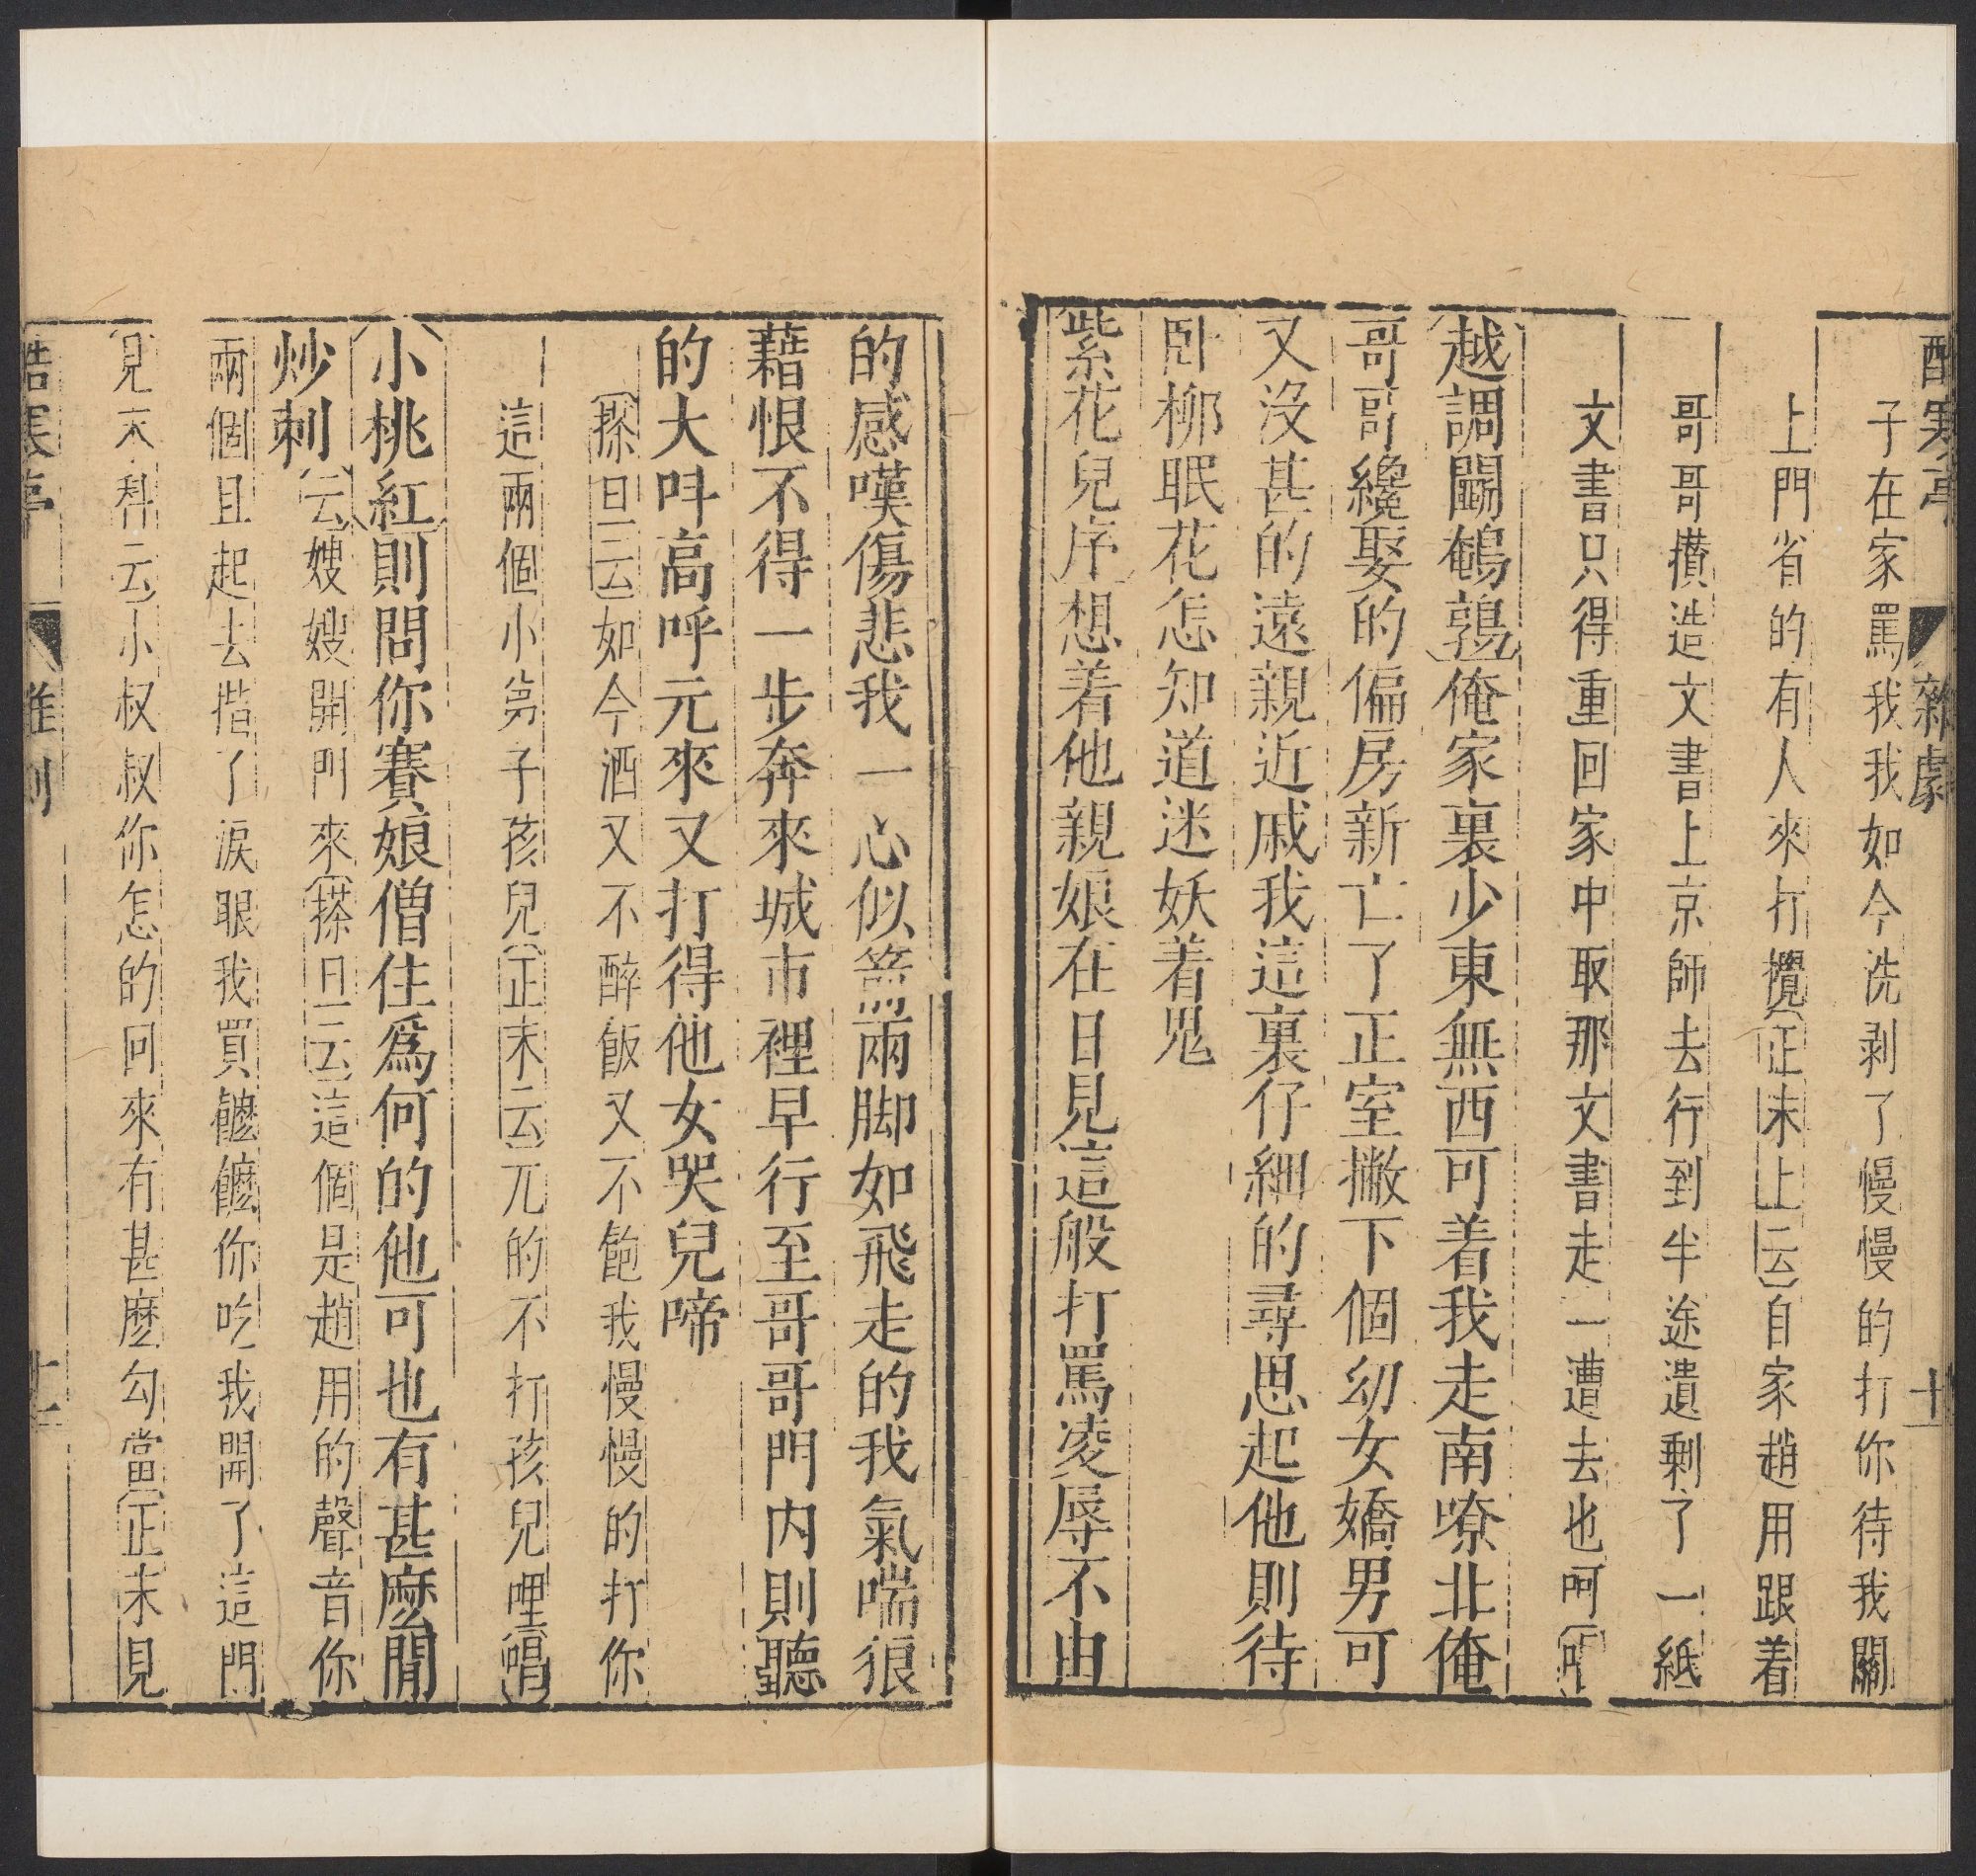 酷寒亭 雜劇 十
子在家罵我我如今洗剥了慢慢的打你待我關
上門省的有人來打攪正末上云自家趙用跟着
哥哥攢造文書上京師去行到半途遺剩了一紙
文書只得重回家中取那文書走一遭去也呵唱
越調鬭鵪鶉俺家裏少東無西可着我走南嘹北俺
哥哥纔娶的偏房新亡了正室撇下個幼女嬌男可
又没甚的遠親近戚我這裏仔細的尋思起他則待
卧柳眠花怎知道迷妖着鬼
紫花兒序想着他親娘在日見這般打罵凌辱不由
的感嘆傷悲我一心似箭兩脚如飛走的我氣喘狼
藉恨不得一步奔來城市裡早行至哥哥門内則聽
的大呌高呼元來又打得他女哭兒啼
搽旦云如今酒又不醉飯又不飽我慢慢的打你
這兩個小弟子孩兒正末云兀的不打孩兒哩唱
小桃紅則問你賽娘僧住爲何的他可也有甚麽閒
炒剌云嫂嫂開門來搽旦云這個是趙用的聲音你
兩個且起去揩了淚眼我買䭧䭧你吃我開了這門
見末科云小叔叔你怎的回來有甚麽勾當正末見
酷寒亭 雜劇